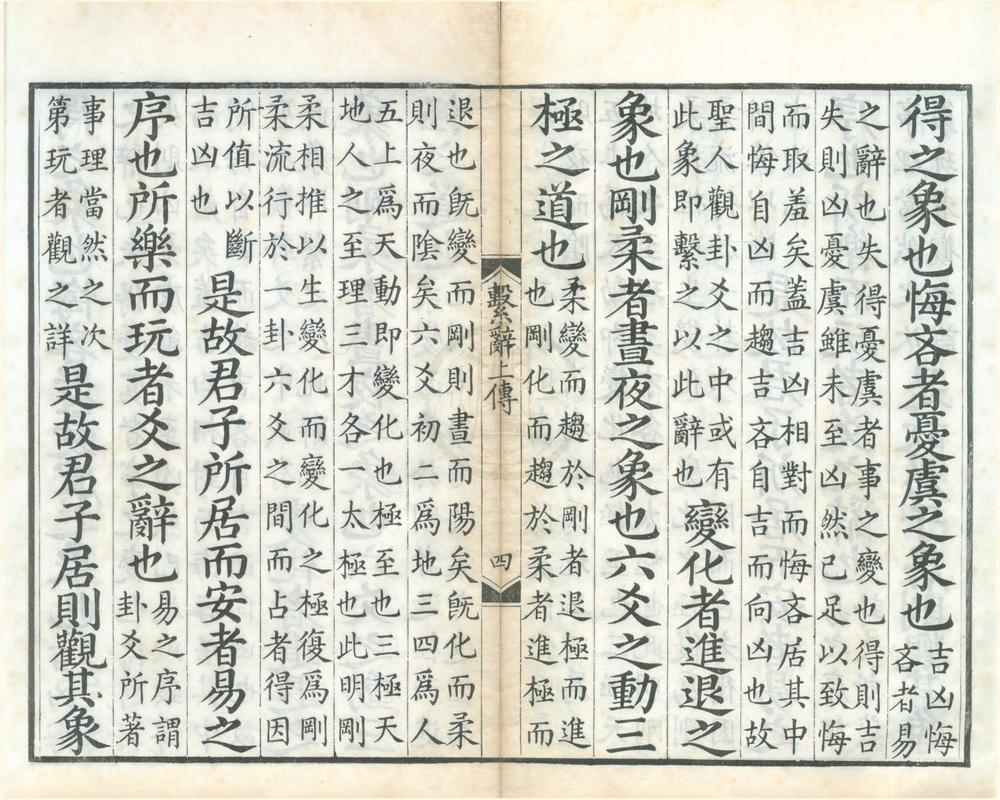 得之象也悔吝者憂虞之象也吉凶悔吝者易
之辭也失得憂虞者事之變也得則吉
失則凶憂虞雖未至凶然已足以致悔
而取羞矣蓋吉凶相對而悔吝居其中
間悔自凶而趨吉吝自吉而向凶也故
聖人觀卦爻之中或有
此象即繫之以此辭也
變化者進退之
象也剛柔者晝夜之象也六爻之動三
極之道也
柔變而趨於剛者退極而進
也剛化而趨於柔者進極而
繫辭上傳
四
退也旣變而剛則晝而陽矣旣化而柔
則夜而陰矣六爻初二爲地三四爲人
五上爲天動即變化也極至也三極天
地人之至理三才各一太極也此明剛
柔相推以生變化而變化之極復爲剛
柔流行於一卦六爻之間而占者得因
所値以斷
吉凶也
是故君子所居而安者易之
序也所樂而玩者爻之辭也
易之序謂
卦爻所著
事理當然之次
第玩者觀之詳
是故君子居則觀其象